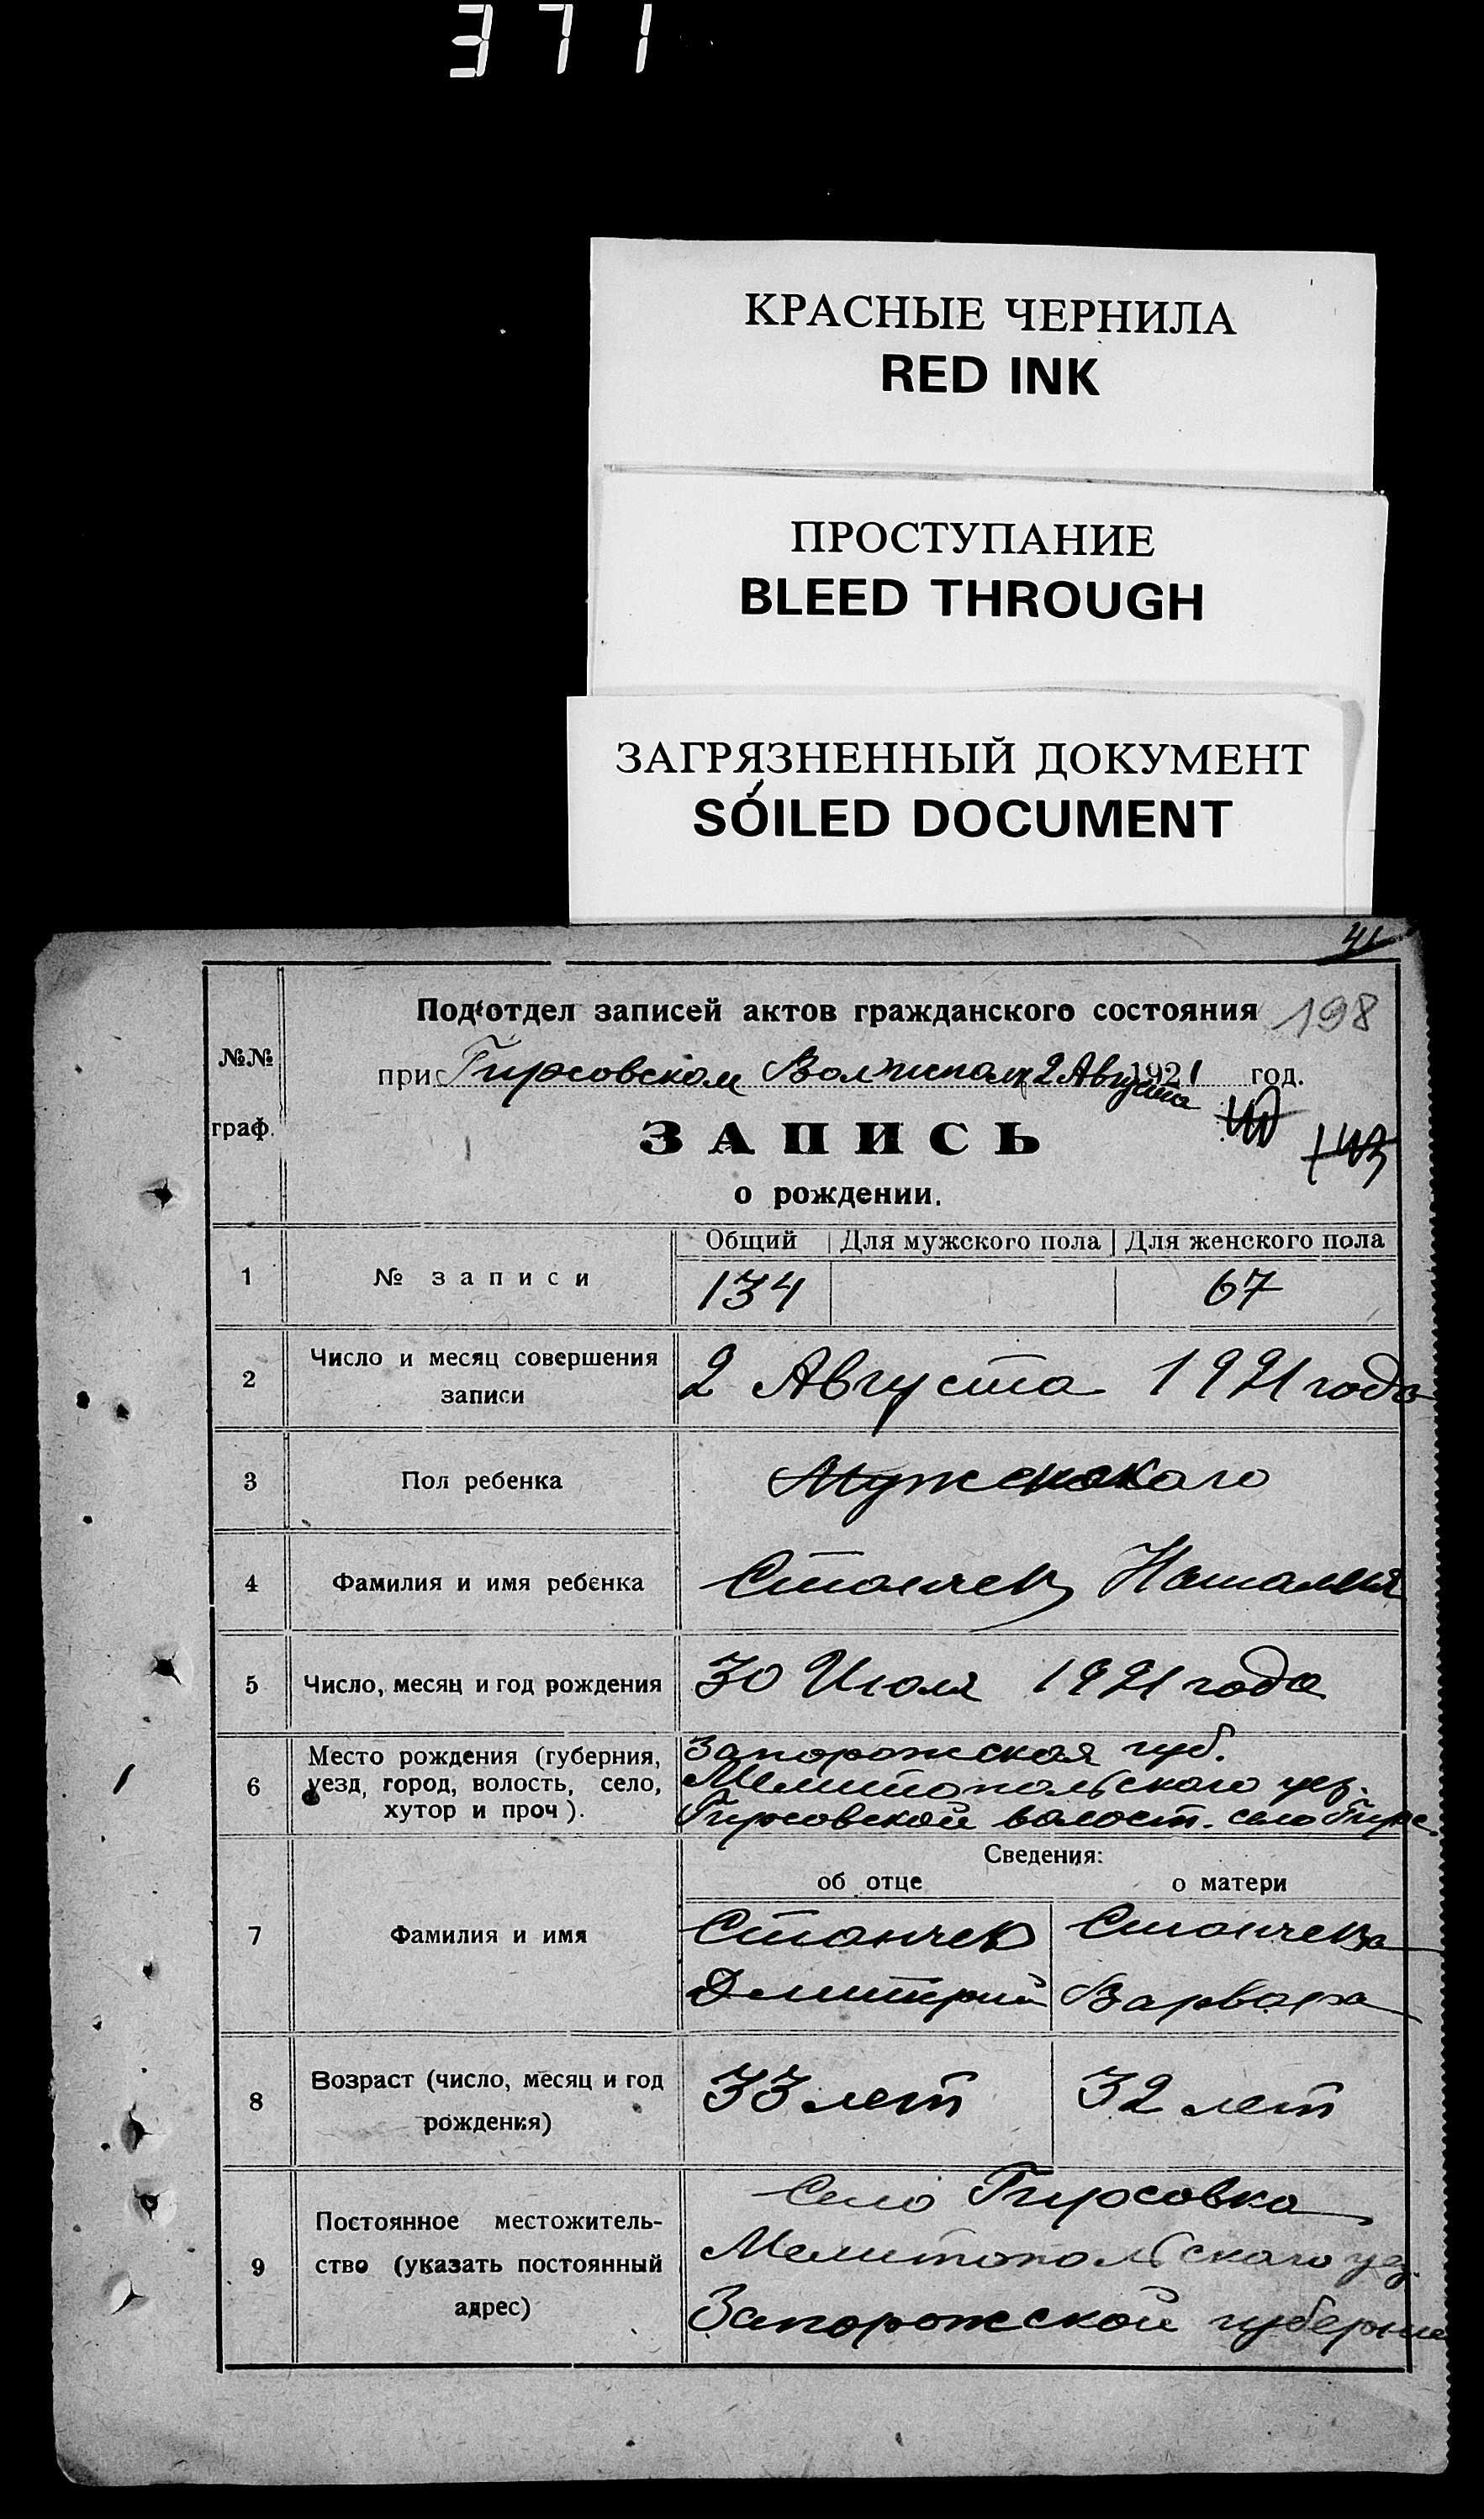 371
КРАСНЫЕ ЧЕРНИЛА
RED INK
ПРОСТУПАНИЕ
BLEED THROUGH
ЗАГРЯЗНЕННЫЙ ДОКУМЕНТ
SOILED DOCUMENT
41
№№
граф.
Подотдел записей актов гражданского состояния 198
при Гирсовском Волисполк 2 Августа 1921 год.
ЗАПИСЬ
о рождении.
Общий Для мужского пола Для женского пола
1 № записи 134 67
2 Число и месяц совершения
записи
2 Августа 1921 года
3 Пол ребенка
4 Фамилия и имя ребенка Станчев Наталия
5 Число, месяц и год рождения 30 Июля 1921 года
6 Место рождения (губерния,
уезд, город, волость, село,
хутор и проч).
Запорожская губ.
Мелитопольского уез.
Гирсовской волост. село Гирс.
Сведения:
об отце о матери
7 Фамилия и имя
Станчев Станчева
Дмитрий Варвара
8 Возраст (число, месяц и год
рождения)
33 лет 32 лет
9 Постоянное местожитель-
ство (указать постоянный
адрес)
Село Гирсовка
Мелитопольского уез.
Запорожской губернии